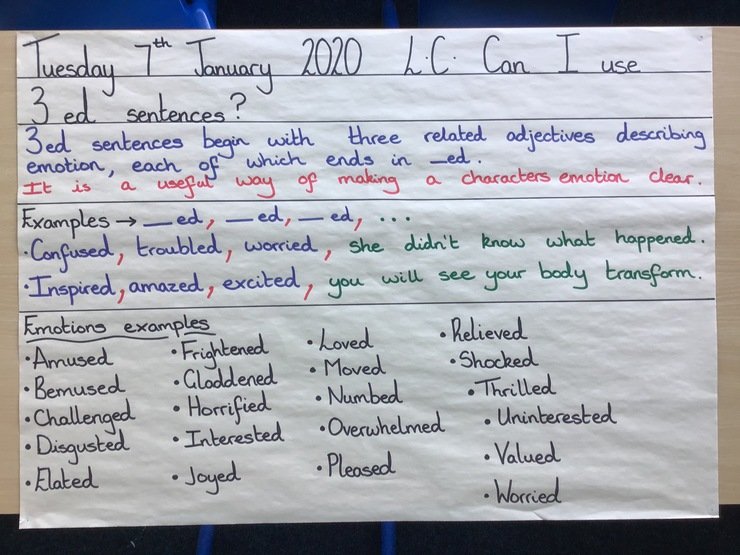 Tuesday 7th January 2020 L.C. Can I use
3 ed sentences?
3ed sentences begin with three related adjectives describing
emotion, each of which ends in _ed.
It is a useful way of making a characters emotion clear.
Examples → _ed, _ed, _ed, ...
• Confused, troubled, worried, she didn't know what happened.
• Inspired, amazed, excited, you will see your body transform.
Emotions examples
• Amused
• Bemused
• Challenged
• Disgusted
• Elated
• Frightened
• Gladdened
• Horrified
• Interested
• Joyed
• Loved
• Moved
• Numbed
• Overwhelmed
• Pleased
• Relieved
• Shocked
• Thrilled
• Uninterested
• Valued
• Worried